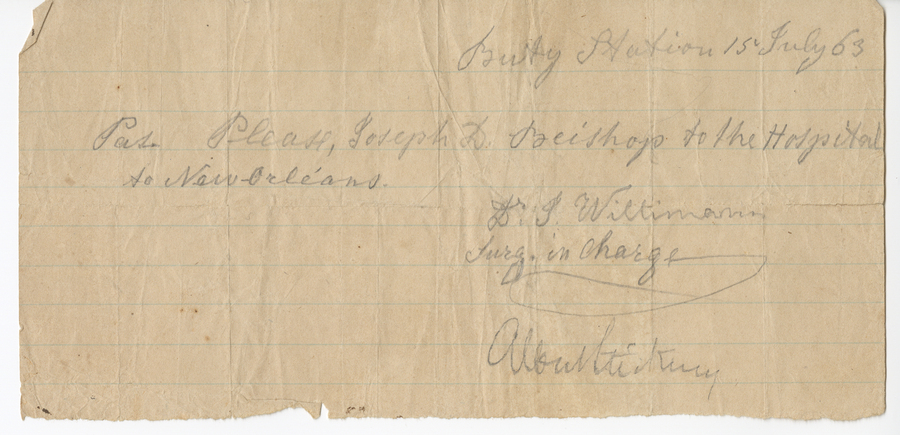 Station 15 July 63
Pas Please, Joseph D. Beishop to the Hospital
to New Orléans.
Dr. J. Wiltimann
Surg. in Charge
Albert Stickney